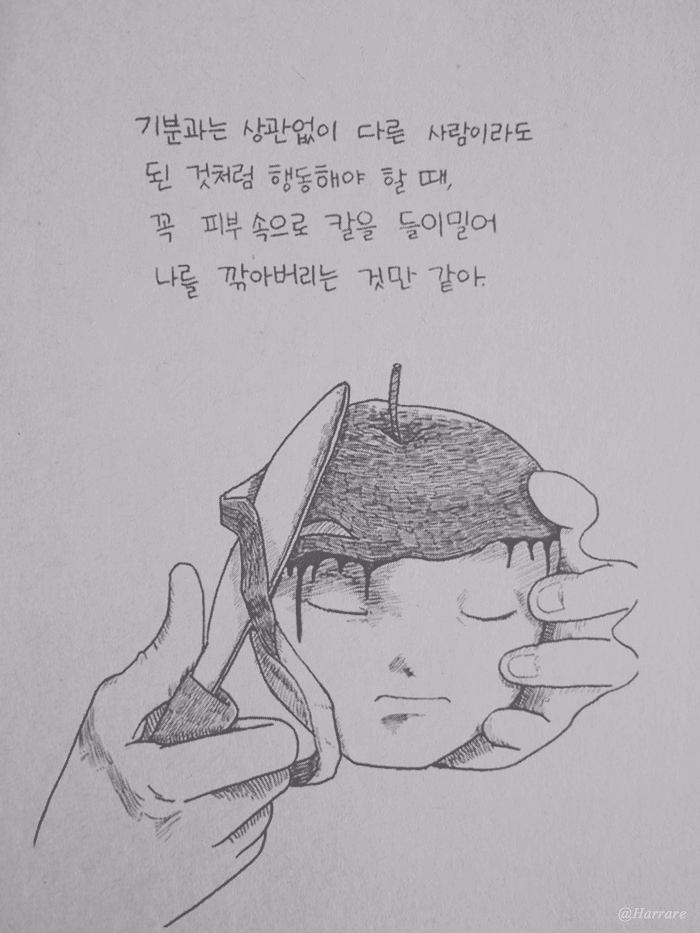 기분과는 상관없이 다른 사람이라도
된 것처럼 행동해야 할 때,
꼭 피부 속으로 칼을 들이밀어
나를 깎아버리는 것만 같아.
@Harrare